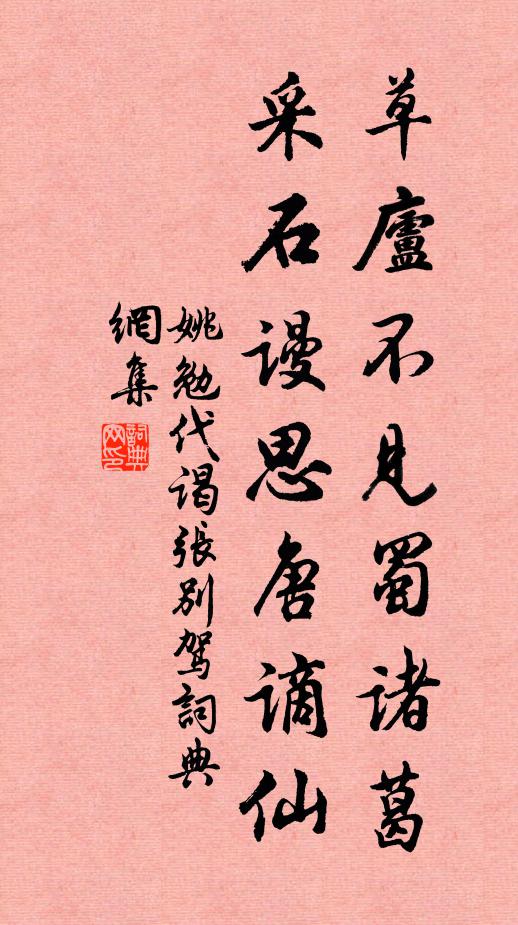 草廬不見蜀諸葛
采石謾思唐謫仙
姚勉代謁張別駕詞典
網集
詞典網印